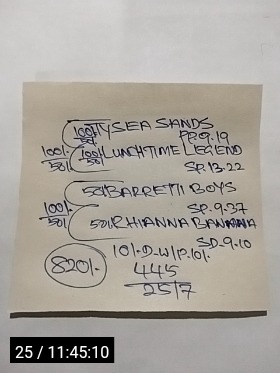 100/- 50/- TYSEA SANDS
PP.9.19
100/- 50/- 100/- 50/- LUNCHTIME LEGEND
SP.13.22
50/- BARRETTI BOYS
SP.9.37
100/- 50/- 50/- RHIANNA BANANA
SD.9.10
820/- 10/-D-W/P.10/-
445
2517
25 / 11:45:10